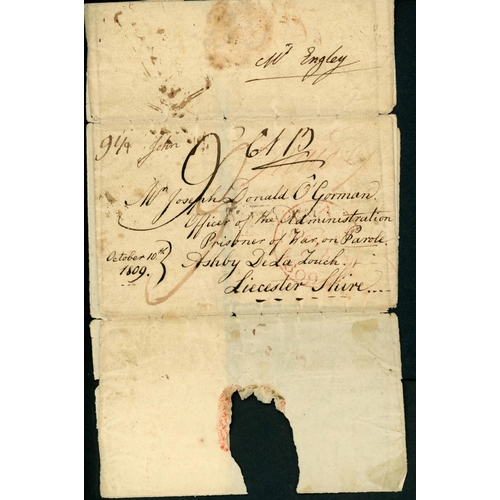 Mr Engley
John
Mr Joseph Donald O'Gorman
Officer of the Administration
Prisoner of War, on Parole.
October 10th
1809.
Ashby De La Zouch.
Liecester Shire.